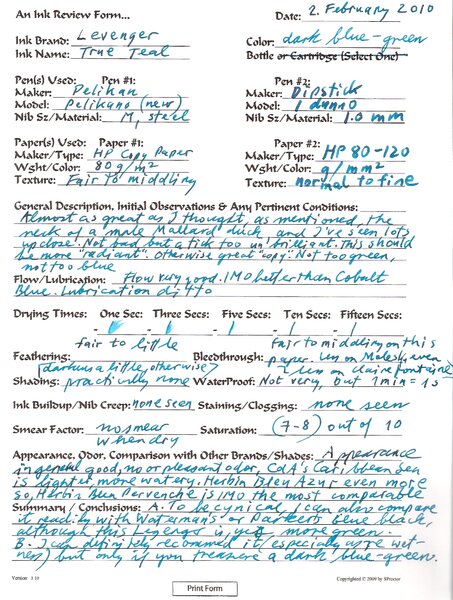 An Ink Review Form... Date: 2. February 2010
Ink Brand: Levenger Color: dark blue-green
Ink Name: True Teal Bottle or Cartridge (Select One)
Pen(s) Used: Pen #1: Pen #2:
Maker: Pelikan Maker: Dipstick
Model: Pelikano (new) Model: I dunno
Nib Sz/Material: M, steel Nib Sz/Material: 1.0 mm
Paper(s) Used: Paper #1: Paper #2:
Maker/Type: HP Copy Paper Maker/Type: HP 80-120
Wght/Color: 80 g/m² Wght/Color: g/mm²
Texture: Fair to middling Texture: normal to fine
General Description, Initial Observations & Any Pertinent Conditions:
Almost as great as I thought, as mentioned, the
neck of a male Mallard duck, and I've seen lots
up close. Not bad but a tick too un'brilliant. This should
be more "radiant". Otherwise great "copy". Not too green,
not too blue
Flow/Lubrication: Flow very good. IMO better than Cobalt
Blue. Lubrication ditto
Drying Times: One Sec: Three Secs: Five Secs: Ten Secs: Fifteen Secs:
fair to little fair to middling on this
Feathering: Bleedthrough: paper. Un on Moleskine, even
(darkens a little, otherwise) Un on Clairefontaine
Shading: practically none WaterProof: Not very, but 1 min = is
Ink Buildup/Nib Creep: none seen Staining/Clogging: none seen
Smear Factor: no smear Saturation: (7-8) out of 10
when dry
Appearance, Odor, Comparison with Other Brands/Shades: Appearance
in general good, no or pleasant odor, CdA's Caribbean Sea
is lighter, more watery. Herbin Bleu Azur even more
so, Herbin Bleu Pervenche is IMO the most comparable
Summary / Conclusions: A. To be cynical, I can also compare
it readily with Waterman's or Parkers blue black,
although this Levenger is, yes, more green.
B. I can definitely recommend it, especially as re wet-
ness) but only if you treasure a dark blue-green.
Version 1.10 Copyright © 2009 by SProctor
Print Form